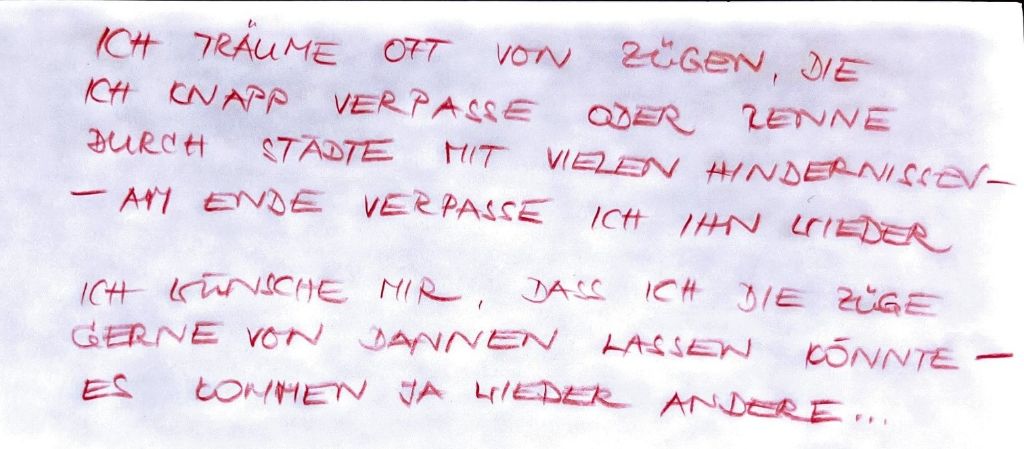 ICH TRÄUME OFT VON ZÜGEN, DIE
ICH KNAPP VERPASSE ODER RENNE
DURCH STÄDTE MIT VIELEN HINDERNISSEN –
– AM ENDE VERPASSE ICH IHN WIEDER
ICH WÜNSCHE MIR, DASS ICH DIE ZÜGE
GERNE VON DANNEN LASSEN KÖNNTE –
ES KOMMEN JA WIEDER ANDERE...